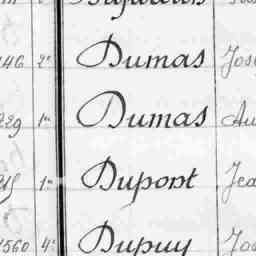 146 2e Dumas Jos
229 1er Dumas Au
1er Dupont Jea
1560 4e Dupuy Jos